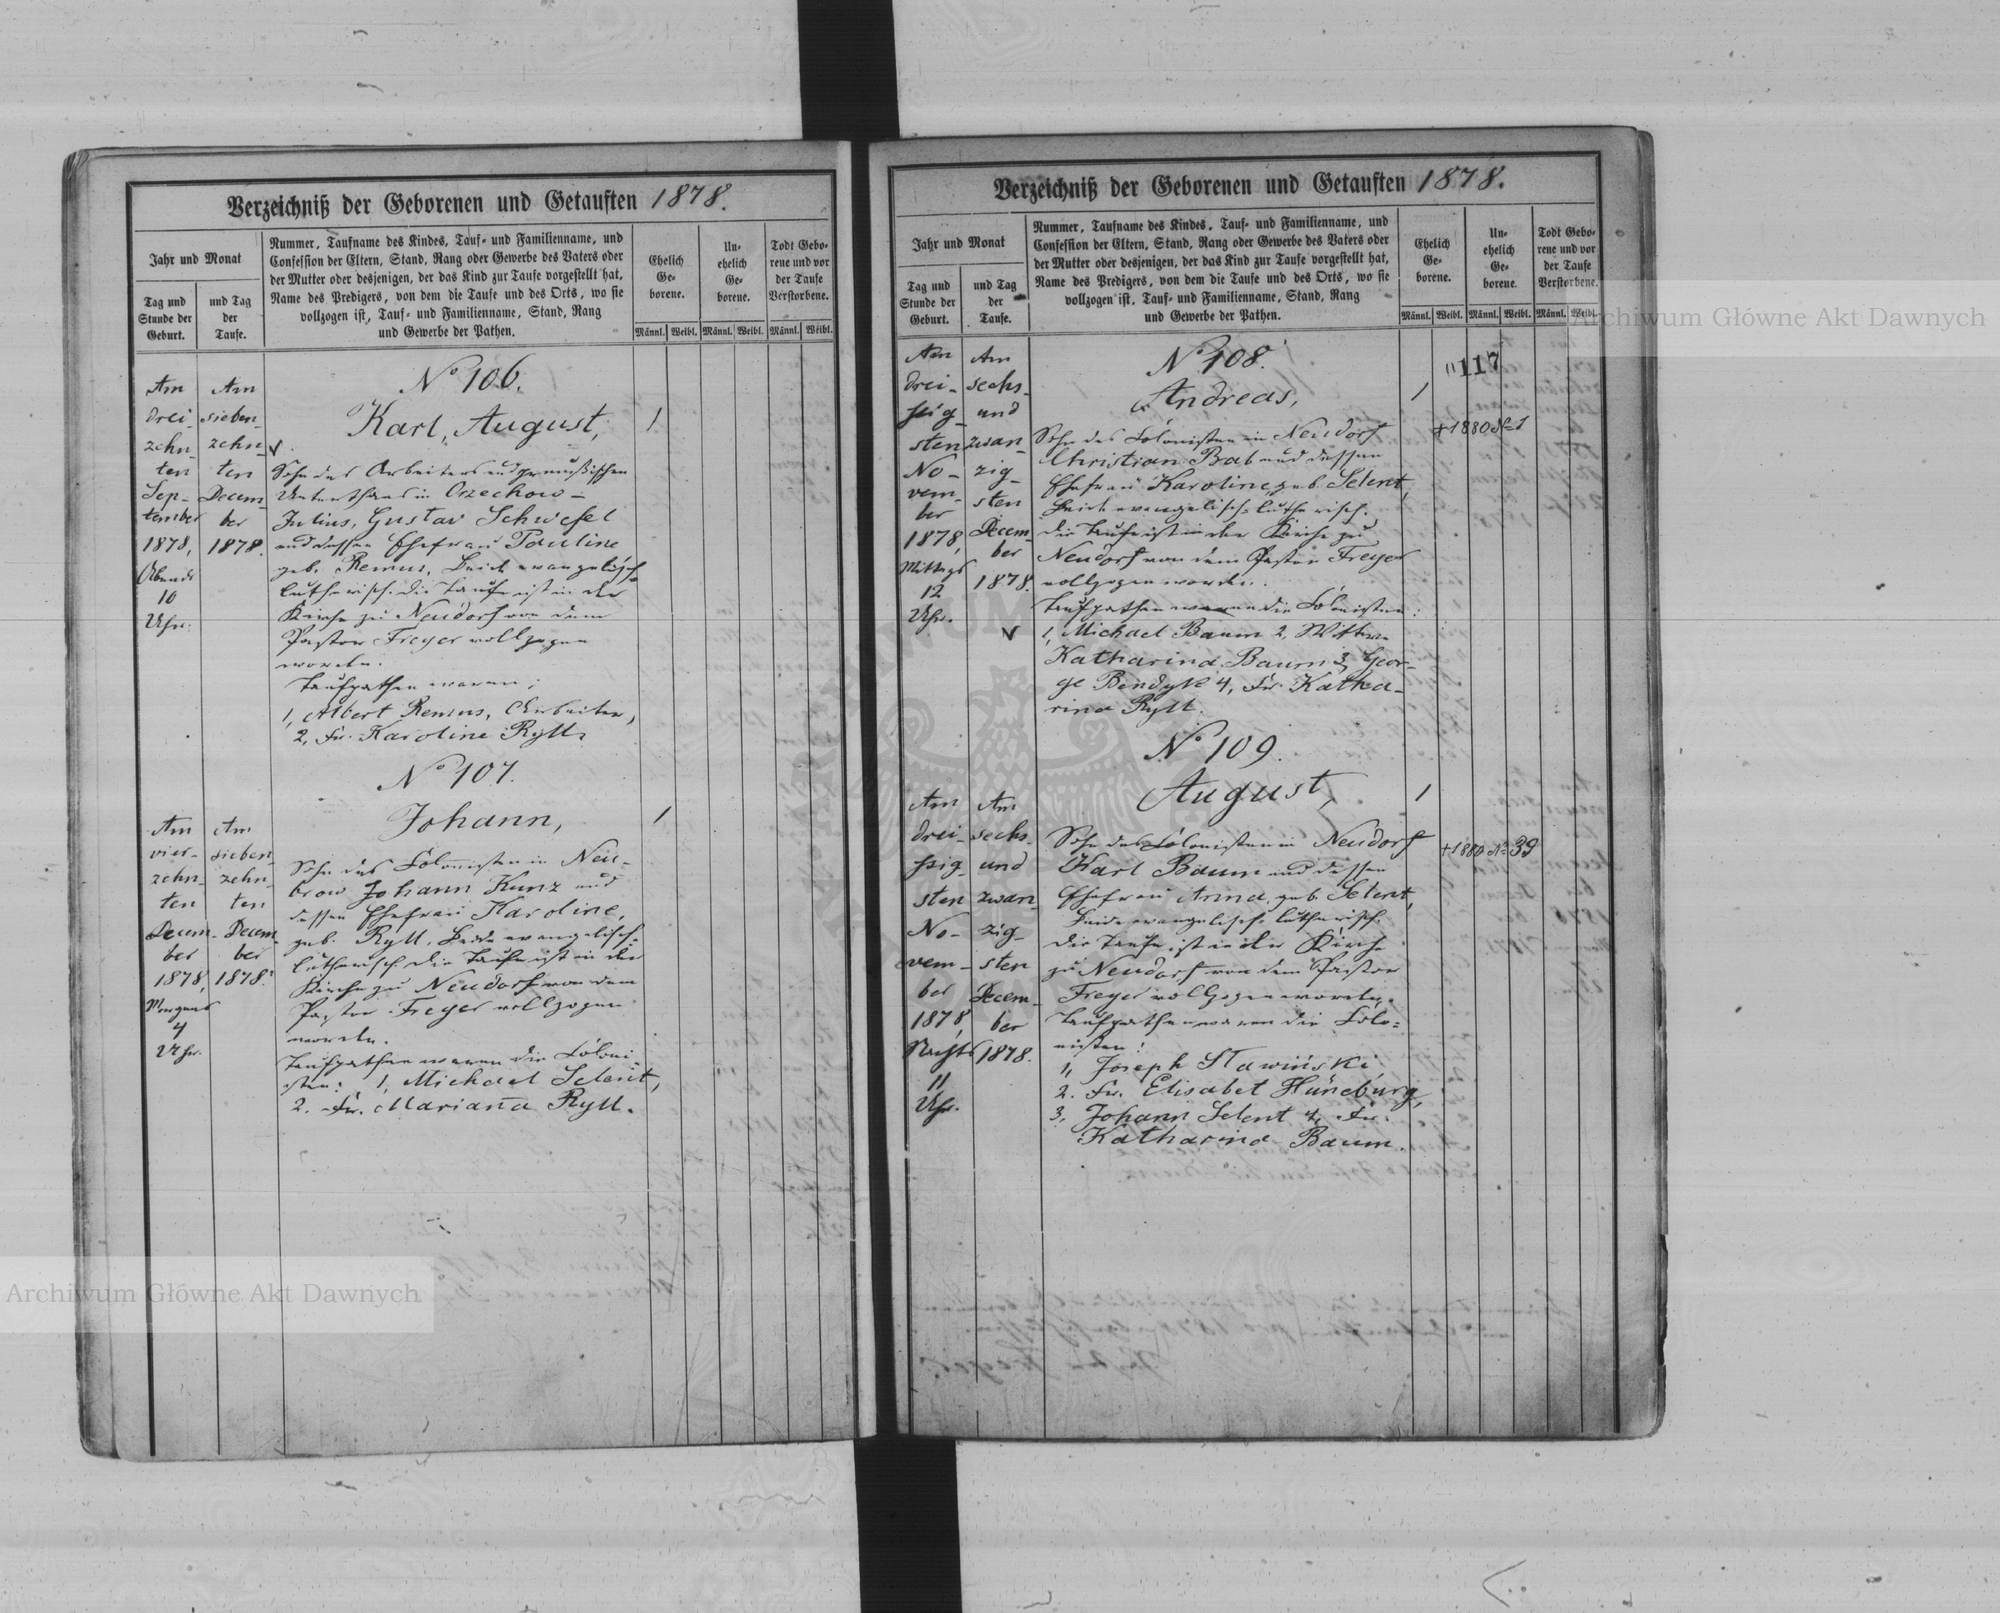 Verzeichniß der Geborenen und Getauften 1878.
Jahr und Monat
Tag und
Stunde der
Geburt.
und Tag
der
Taufe.
Nummer, Taufname des Kindes, Tauf- und Familienname, und
Confession der Eltern, Stand, Rang oder Gewerbe des Vaters oder
der Mutter oder desjenigen, der das Kind zur Taufe vorgestellt hat,
Name des Predigers, von dem die Taufe und des Orts, wo sie
vollzogen ist, Tauf- und Familienname, Stand, Rang
und Gewerbe der Pathen.
Ehelich
Ge-
borene.
Un-
ehelich
Ge-
borene.
Todt Gebo-
rene und vor
der Taufe
Verstorbene.
Männl. Weibl. Männl. Weibl. Männl. Weibl.
Am
drei-
zehn-
ten
Sep-
tember
1878,
Abends
10
Uhr.
Am
sieben-
zehn-
ten
Decem-
ber
1878.
No 106.
Karl, August, 1
Sohn des Arbeiters und preußischen
Unterthans in Orzechow-
Julius, Gustav Schwefel
und dessen Ehefrau Pauline
geb. Remus, Beide evangelisch-
lutherisch. Die Taufe ist in der
Kirche zu Neudorf von dem
Pastor Freyer vollzogen
worden.
Taufpathen waren:
1, Albert Remus, Arbeiter,
2, Fr. Karoline Ryll.
Am
vier-
zehn-
ten
Decem-
ber
1878,
Morgens
4
Uhr.
Am
sieben-
zehn-
ten
Decem-
ber
1878.
No 107.
Johann, 1
Sohn des Colonisten in Neu-
brow Johann Kunz und
dessen Ehefrau Karoline,
geb. Ryll, Beide evangelisch-
lutherisch. Die Taufe ist in der
Kirche zu Neudorf von dem
Pastor Freyer vollzogen
worden.
Taufpathen waren die Coloni-
sten: 1, Michael Selent,
2. Fr. Marianna Ryll.
Verzeichniß der Geborenen und Getauften 1878.
Jahr und Monat
Tag und
Stunde der
Geburt.
und Tag
der
Taufe.
Nummer, Taufname des Kindes, Tauf- und Familienname, und
Confession der Eltern, Stand, Rang oder Gewerbe des Vaters oder
der Mutter oder desjenigen, der das Kind zur Taufe vorgestellt hat,
Name des Predigers, von dem die Taufe und des Orts, wo sie
vollzogen ist, Tauf- und Familienname, Stand, Rang
und Gewerbe der Pathen.
Ehelich
Ge-
borene.
Un-
ehelich
Ge-
borene.
Todt Gebo-
rene und vor
der Taufe
Verstorbene.
Männl. Weibl. Männl. Weibl. Männl. Weibl.
117
Am
drei-
ßig-
sten
No-
vem-
ber
1878,
Mittags
12
Uhr.
Am
sechs-
und
zwan-
zig-
sten
Decem-
ber
1878.
No 108.
Andreas, 1
+1880 No 1
Sohn des Colonisten in Neudorf
Christian Bab und dessen
Ehefrau Karoline geb. Selent,
Beide evangelisch-lutherisch.
Die Taufe ist in der Kirche zu
Neudorf von dem Pastor Freyer
vollzogen worden.
Taufpathen waren die Colonisten:
1, Michael Baum 2, Wittwe
Katharina Baum 3, Geor-
ge Bendyk 4, Fr. Katha-
rina Ryll.
Am
drei-
ßig-
sten
No-
vem-
ber
1878,
Nachts
11
Uhr.
Am
sechs-
und
zwan-
zig-
sten
Decem-
ber
1878.
No 109.
August, 1
+1880 No 39
Sohn des Colonisten in Neudorf
Karl Baum und dessen
Ehefrau Anna, geb. Selent,
Beide evangelisch-lutherisch.
Die Taufe ist in der Kirche
zu Neudorf von dem Pastor
Freyer vollzogen worden.
Taufpathen waren die Colo-
nisten:
1, Joseph Stawiński
2. Fr. Elisabet Hüneburg,
3. Johann Selent 4, Fr.
Katharina Baum.
Archiwum Główne Akt Dawnych
Archiwum Główne Akt Dawnych